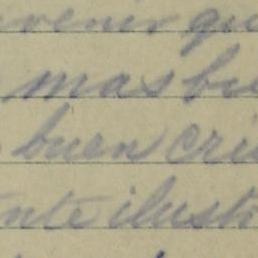 venir qu
mas bu
buen cri
nte ilust